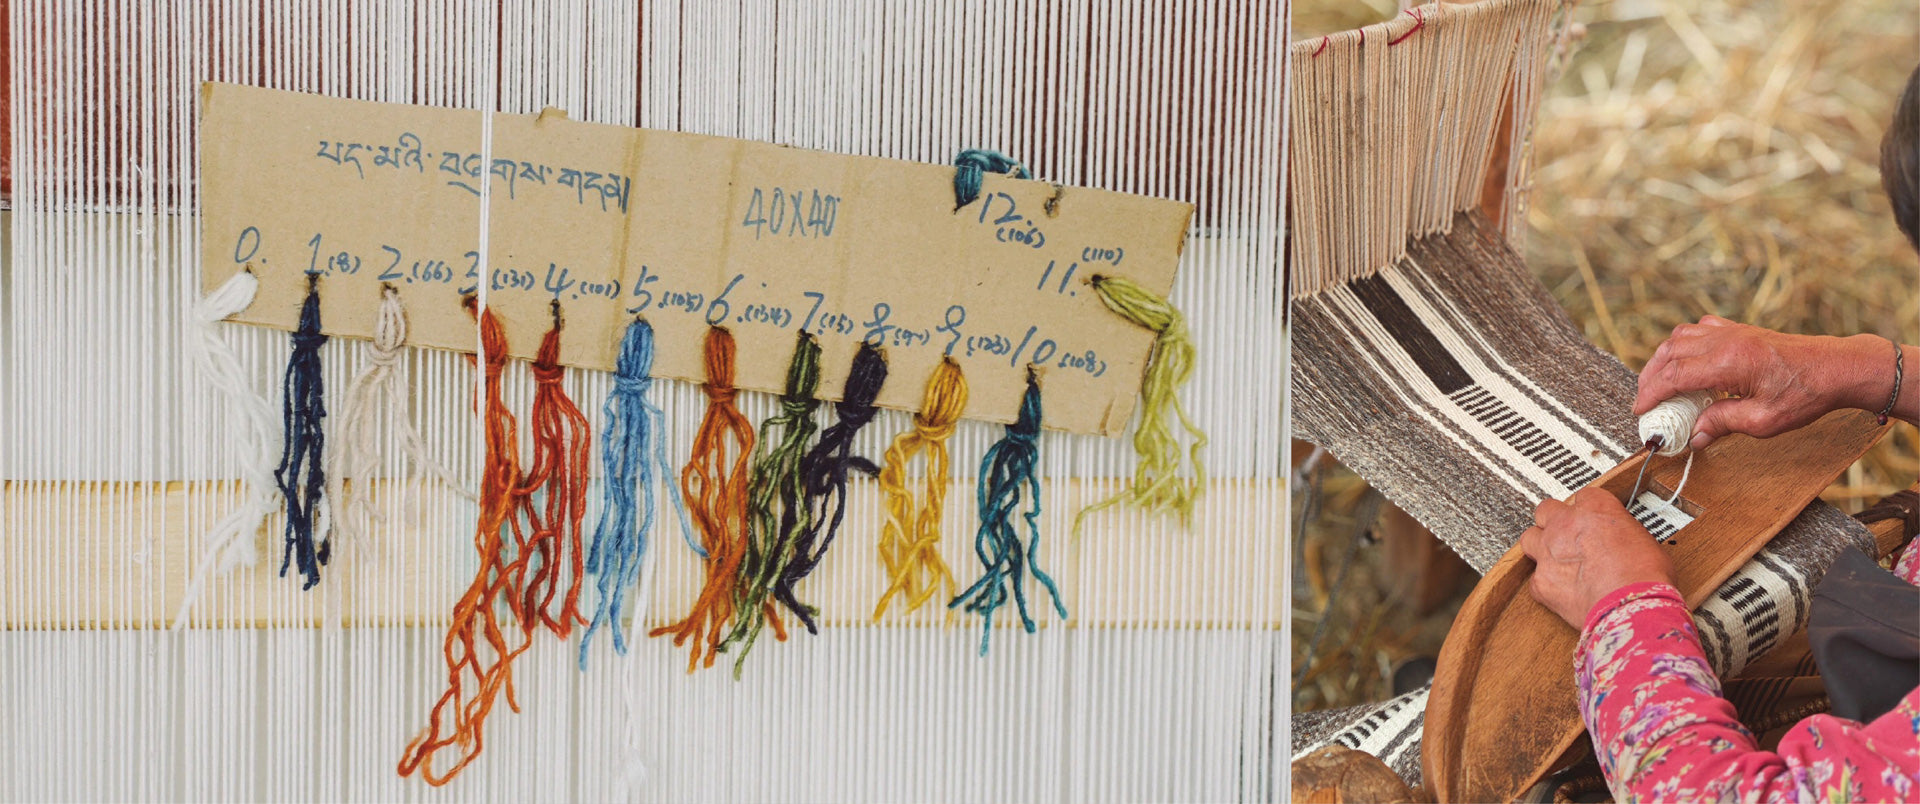 པད་མའི་བཞུགས་གདན།
40X40
12.(106)
11.(110)
0. 1.(8) 2.(66) 3.(131) 4.(101) 5.(105) 6.(134) 7.(15) 8. 9.(123) 10.(108)